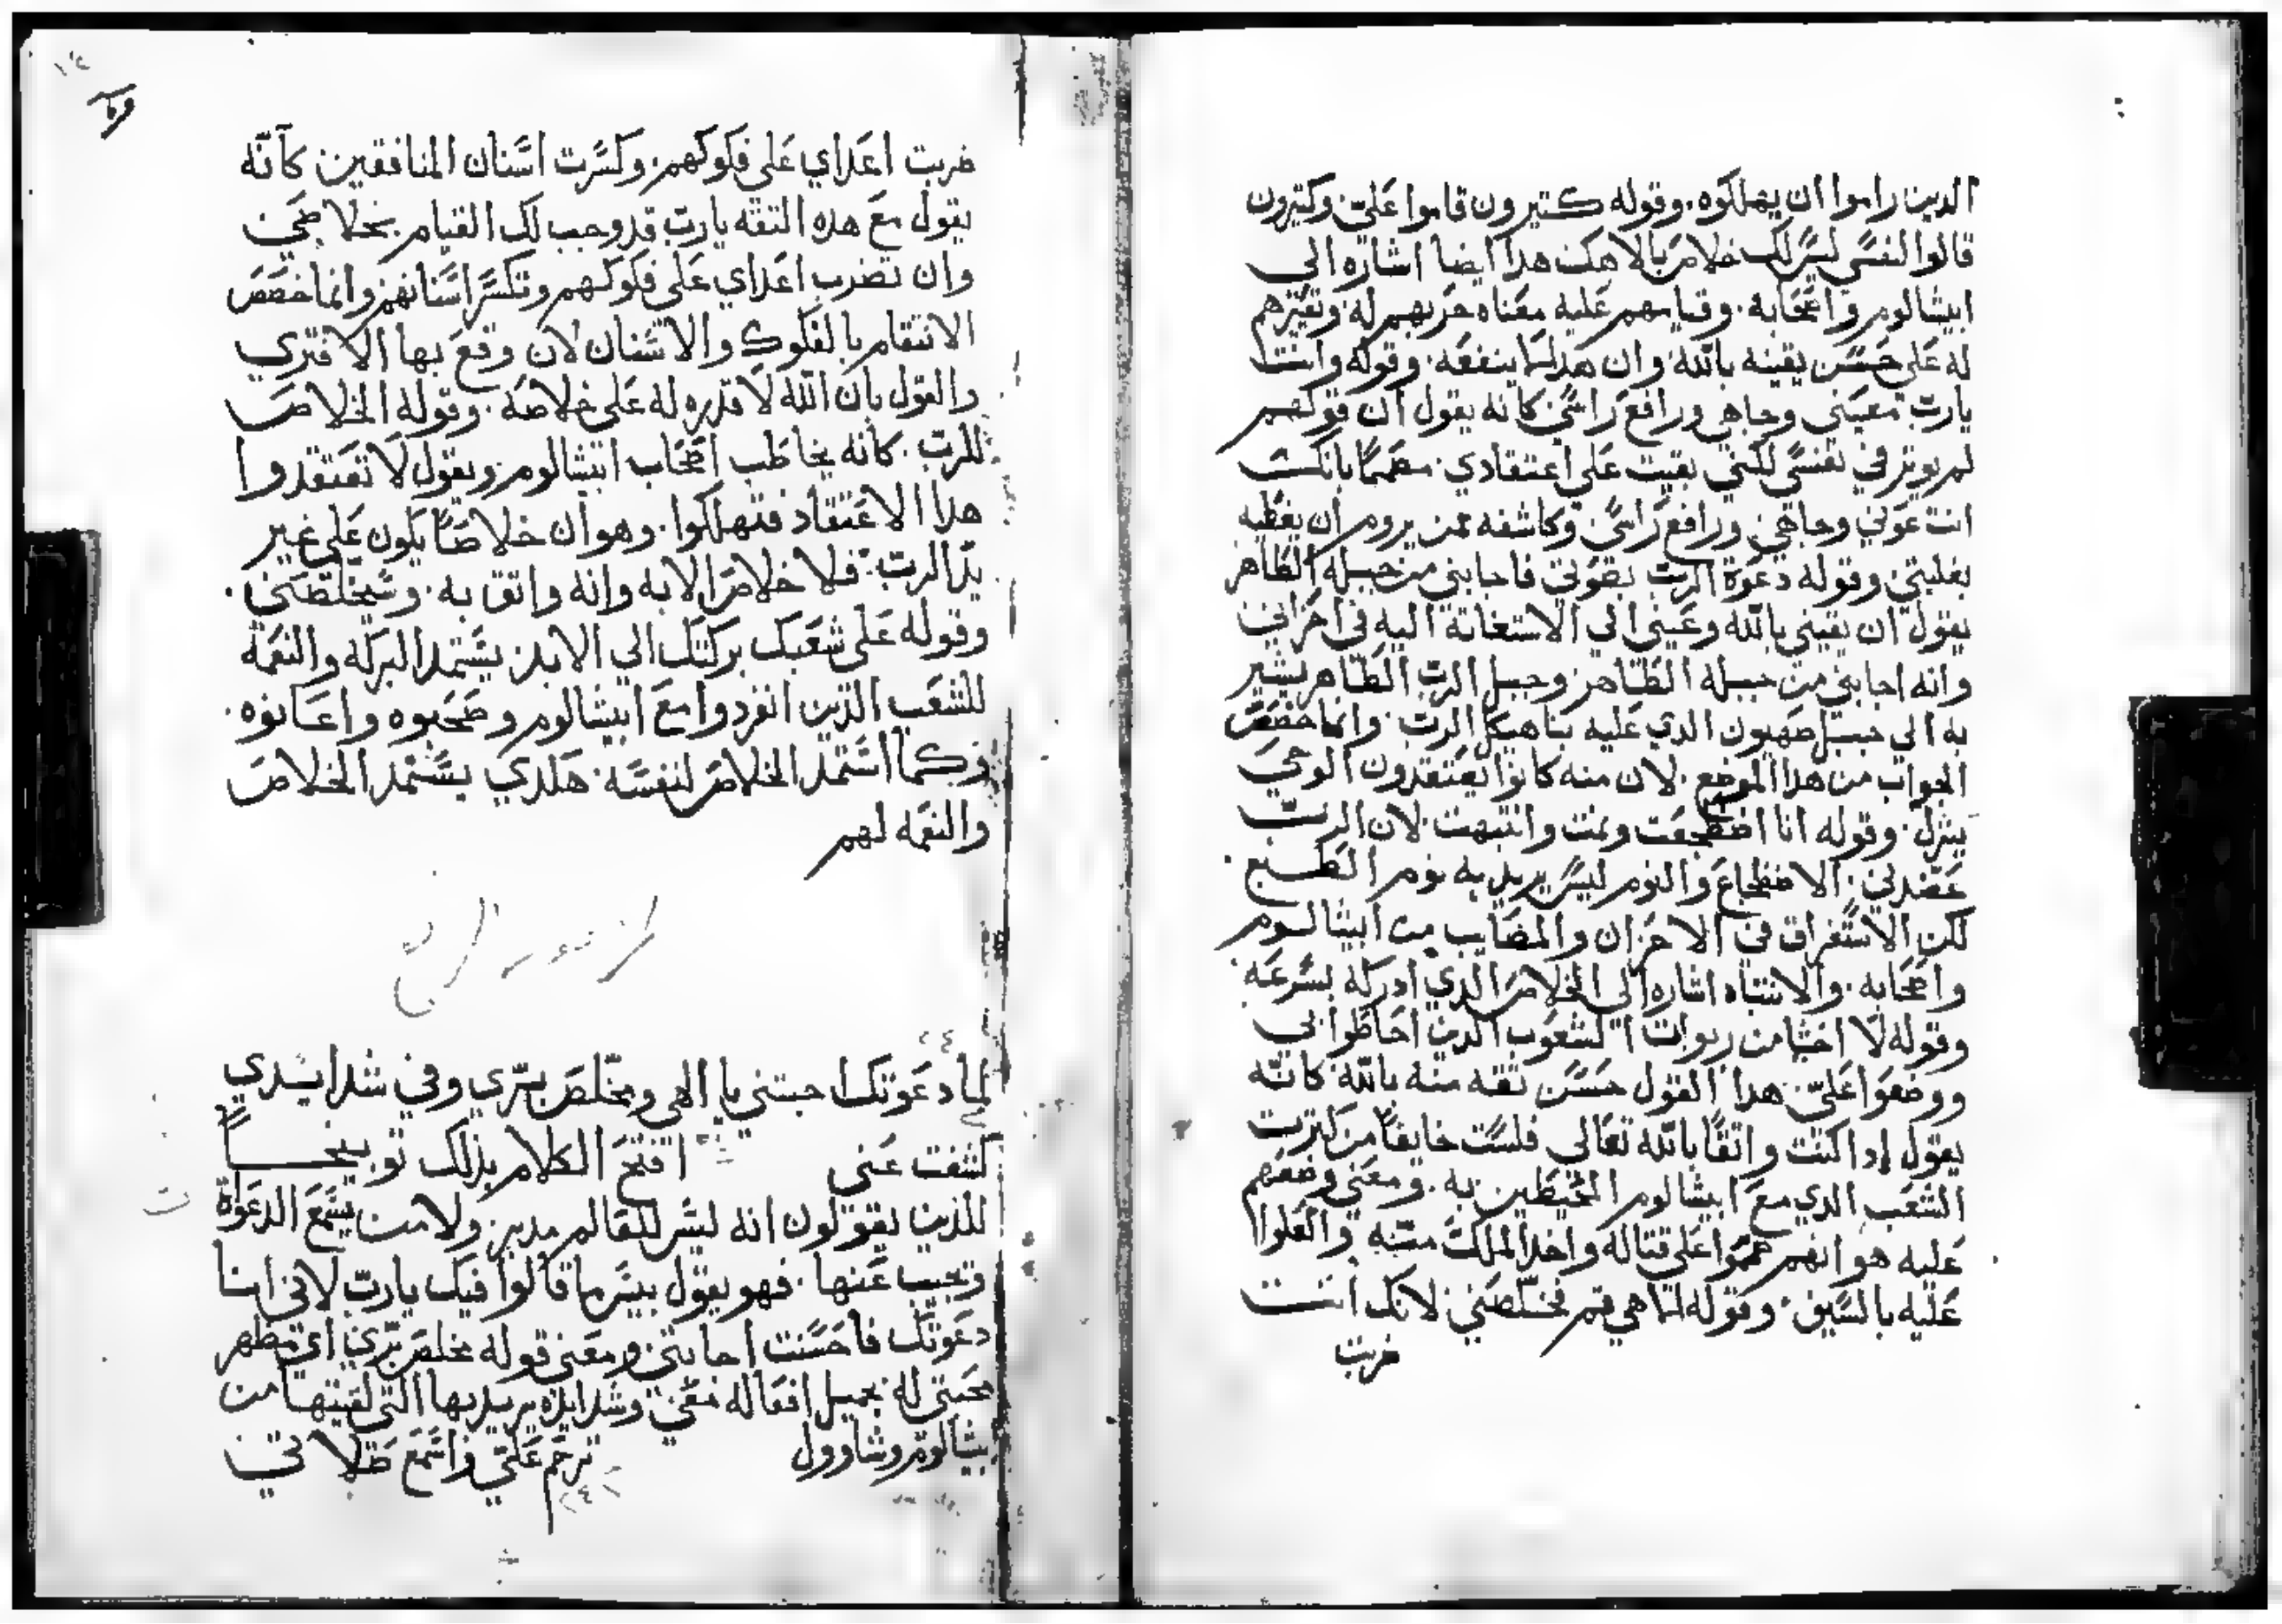 الدين راموا ان يهلكوه. وقوله كتيرون قاموا عليّ وكتيرون
قالوا لنفسي ليس لك خلاص بالاهك هدا ايضا اشاره الي
ابيشالوم واصحابه. وقيامهم عليه معناه حربهم له وتعيّرهم
له علي حسن يقينه بالله وان هدا ينفعه. وقوله وانت
يارب معيني وجاهي ورافع راسي كانه يقول ان قولهم
لم يوتر في نفسي لكنني بقيت علي اعتقادي. مصممًا بانك
انت عوني وجاهي ورافع راسي وكاشفه ممن يروم ان يغطيه
بغلبتي وقوله دعوة الرب بصوتي فاجابني من جبله الطاهر
يقول ان يقيني بالله وعيني الي الاستغاتة اليه في احزاني
وانه اجابني من جبله الطاهر وجبل الرب الطاهر يشير
به الي جبل صهيون الدي عليه بنا هيكل الرب. وانما خصص
الجواب من هدا الموضع. لان منه كانوا يعتقدون الوحي
ينزل. وقوله انا اضطجعت ونمت وانتبهت. لان الرب
عضدني. الاضطجاع والنوم ليس يريد به نوم الطبع
لكن الاستغراق في الاحزان والمصايب من ابيشالوم
واصحابه. والانتباه اشاره الي الخلاص الدي ادركه بسرعه
وقوله لا اخشا من ربوات الشعوب الدين احاطوا بي
ووضعوا عليّ هدا القول حسن تقه منه بالله كانه
يقول ادا كنت واتقًا بالله تعالي فلست خايفًا من كترت
الشعب الدي مع ابيشالوم المحيطين به. ومعني وضعهم
عليه هو انهم همّوا علي قتاله واخد الملك منه والعلوا
عليه بالسيف. وقوله الاهي قم فخلصني لانك انت
ضربت
ضربت اعداي علي فكوكهم. وكسرت اسنان المنافقين كانه
يقول مع هده التقه يارب قد وجب لك القيام بخلاصي
وان تضرب اعداي علي فكوكهم وتكسر اسنانهم وانما خصص
الانتقام بالفكوك والاسنان لان وقع بها الافتري
والقول بان الله لا قدره له علي خلاصه. وقوله الخلاص
للرب. كانه يخاطب اصحاب ابيشالوم ويقول لا تعتقدوا
هدا الاعتقاد فتهلكوا. وهو ان خلاصًا يكون علي غير
يد الرب. فلا خلاص الا به وانه واتق به. وسيخلصني.
وقوله علي شعبك بركتك الي الابد يستمد البركه والنعمه
للشعب الدين انفردوا مع ابيشالوم وصحبوه واعانوه.
وكما استمد الخلاص لنفسه. هكدي يستمد الخلاص
والنعمه لهم
لما دعوتك اجبتني يا الهي ومخلص برّي وفي شدايدي
كشفت عني افتتح الكلام بذلك توبيخًا
للذين يقولون انه ليس للعالم مدبر ولا من يسمع الدعوة
ويجيب عنها. فهو يقول بيس ما قالوا فيك يارب لاني انا
دعوتك فاحسنت اجابتي ومعني قوله مخلص برّي اي مظهر
محبتي له بجميل افعاله معي وشدايده يريد بها التي لقيتها من
بيشالوم وشاوول ترحم عليّ واسمع صلاتي